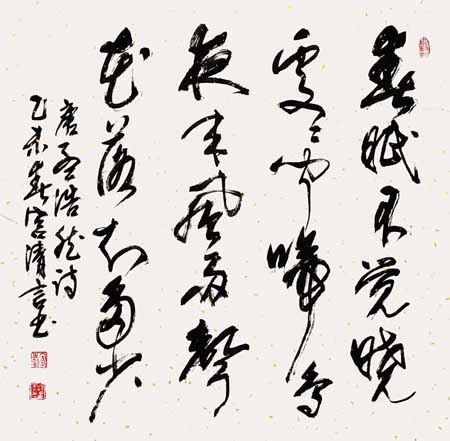 春眠不觉晓
处处闻啼鸟
夜来风雨声
花落知多少
唐孟浩然诗
乙未春宫清言书